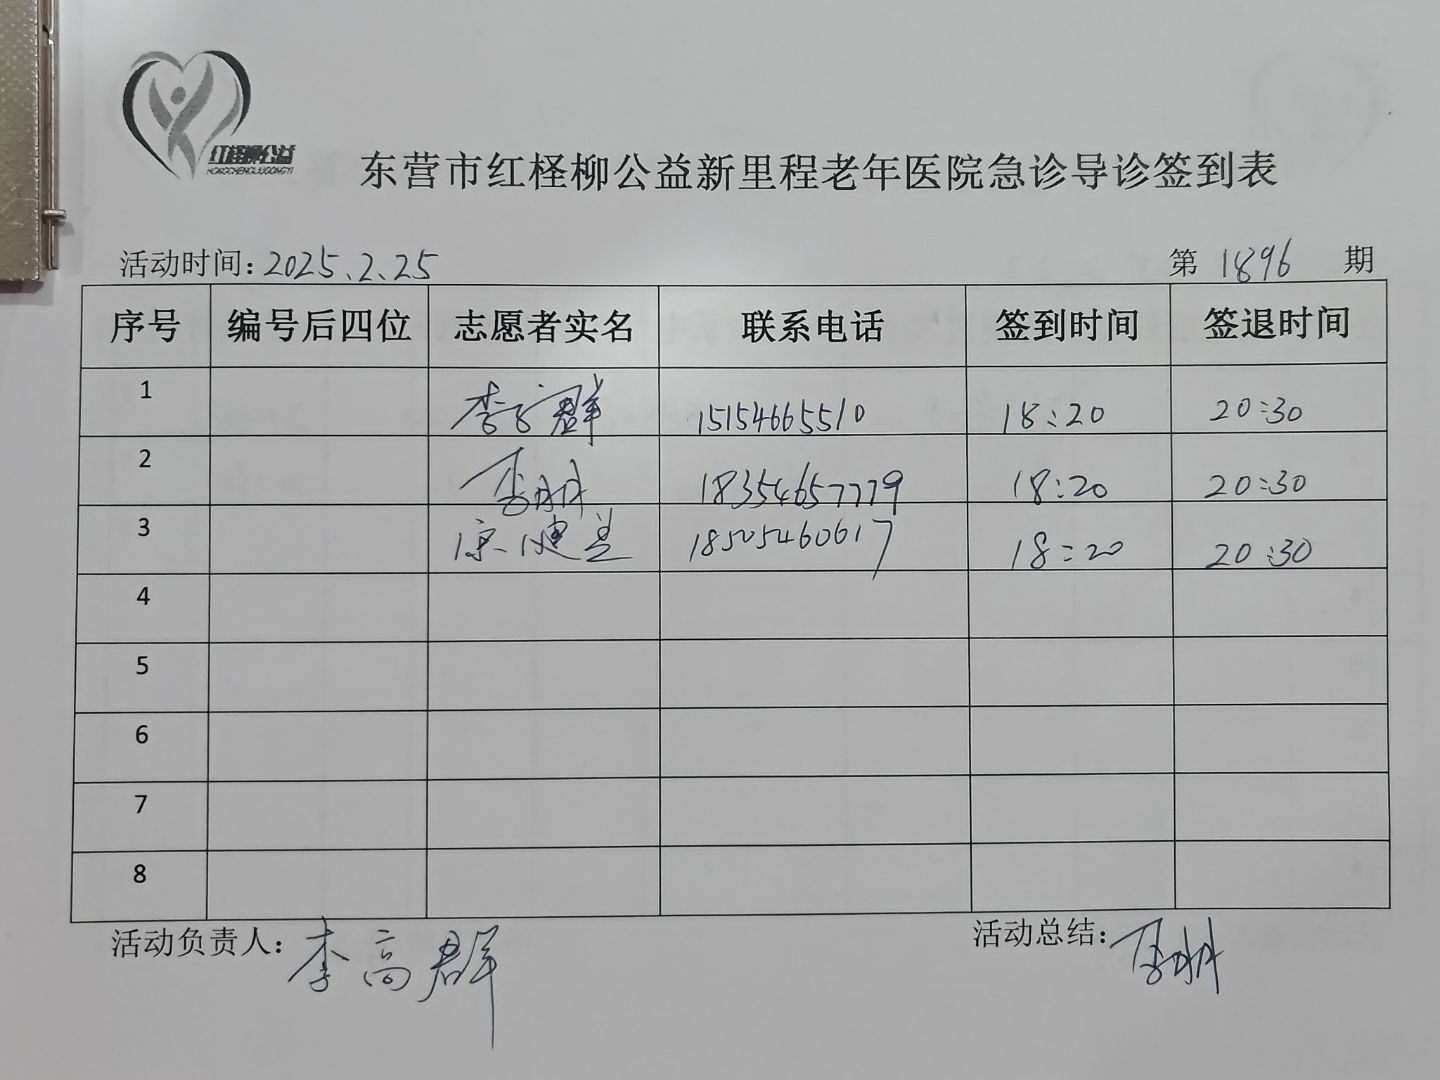 红柽柳公益
HONGCHENGLIUGONGYI
东营市红柽柳公益新里程老年医院急诊导诊签到表
活动时间:2025.2.25 第 1896 期
序号 编号后四位 志愿者实名 联系电话 签到时间 签退时间
1 李高群 15154665510 18:20 20:30
2 18354657779 18:20 20:30
3 18505460617 18:20 20:30
4
5
6
7
8
活动负责人: 李高群 活动总结: